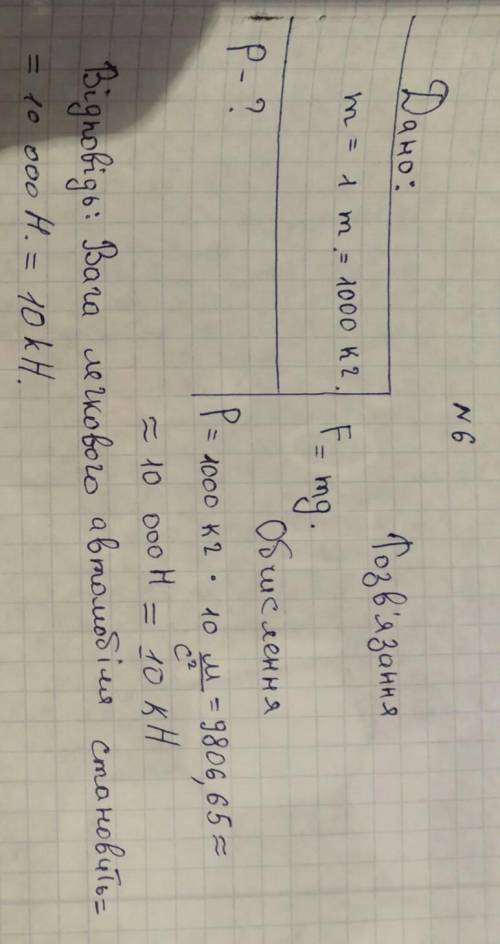 №6
Дано:
m = 1 т. = 1000 кг.
P - ?
Розв'язання
F = mg.
Обчислення
P = 1000 кг · 10 м/с² = 9806,65 ≈
≈ 10 000 Н = 10 кН
Відповідь: Вага легкового автомобіля становить =
= 10 000 Н. = 10 кН.